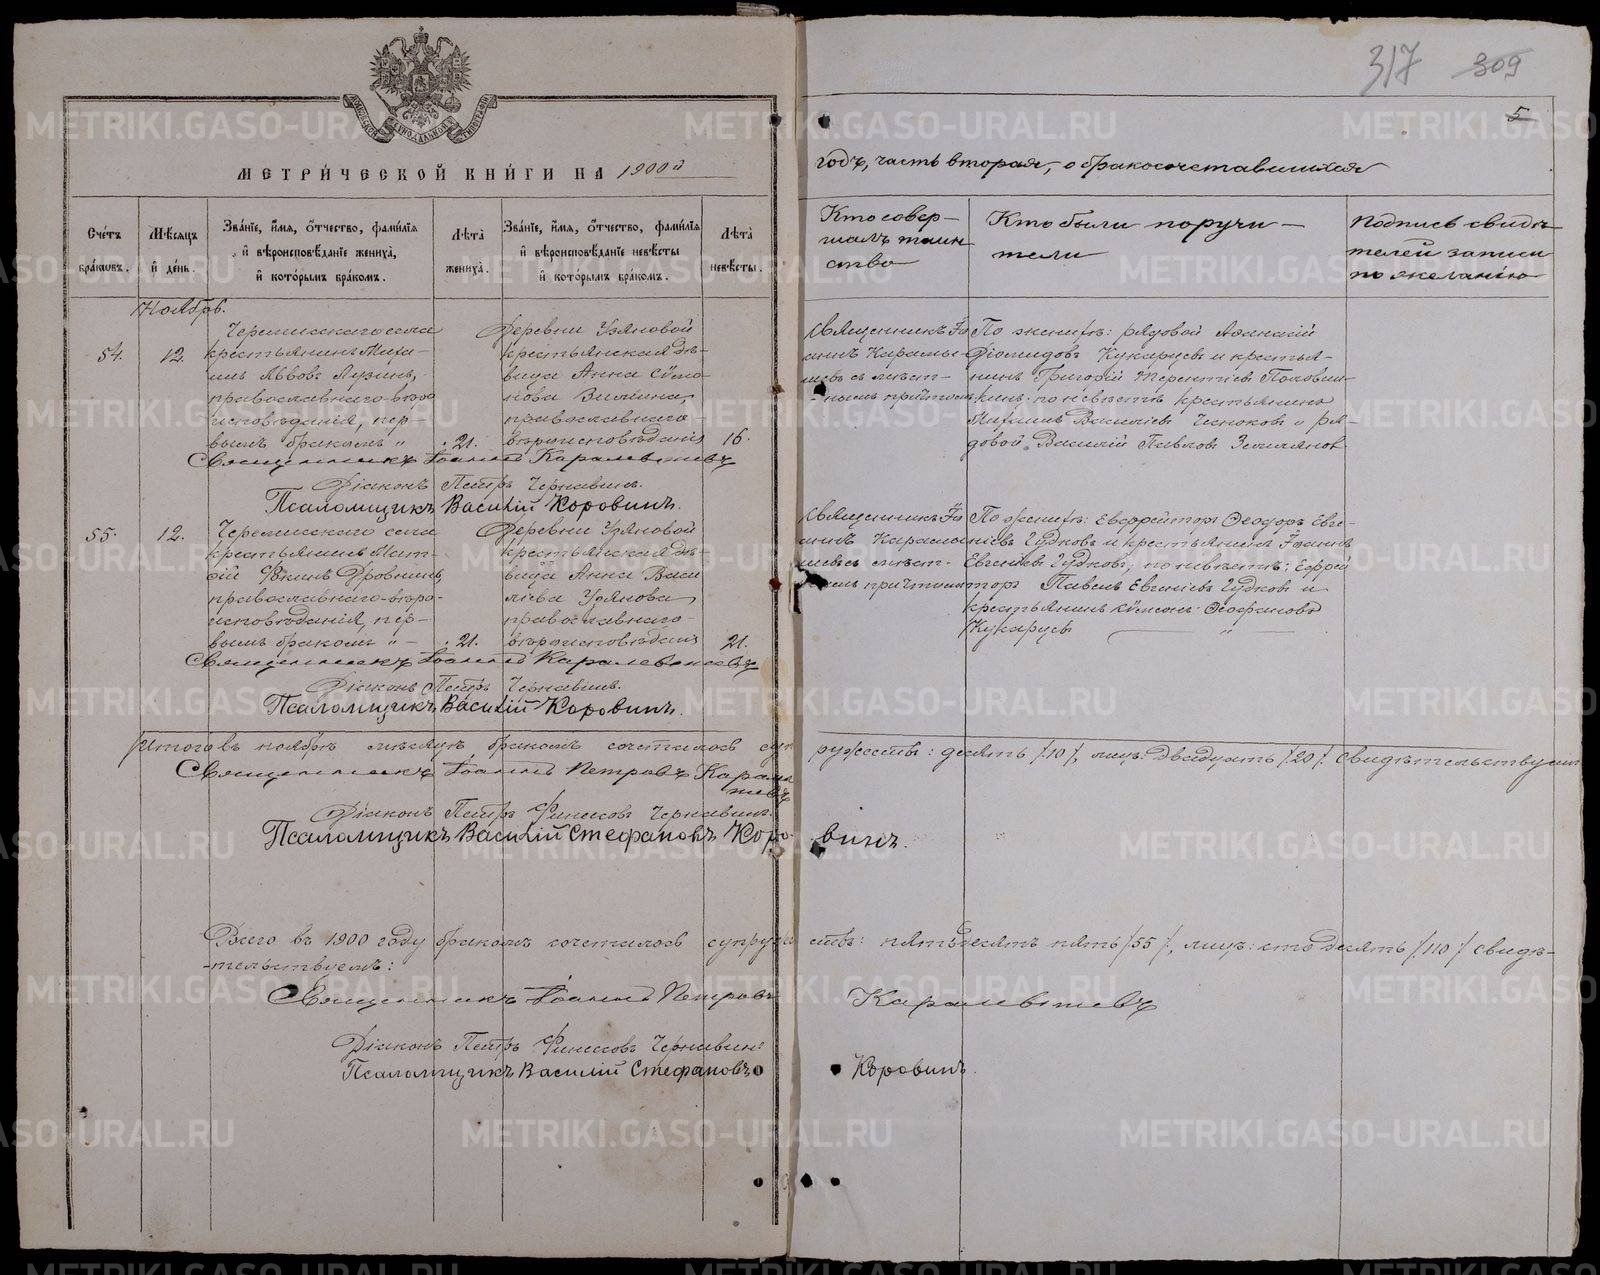 317 309
5
МОСКОВСКОЙ СѴНОДАЛЬНОЙ ТИПОГРАФІИ
МЕТРИ́ЧЕСКОЙ КНИ́ГИ НА 1900й
годъ, часть вторая, о бракосочетавшихся
Сче́тъ бра́ковъ.
Мѣ́сяцъ й де́нь.
Зва́нїе, и́мя, о́тчество, фами́лїя й вѣроисповѣ́данїе жениха̀, й кото́рымъ бра́комъ.
Лѣ́та жениха̀.
Зва́нїе, и́мя, о́тчество, фами́лїя й вѣроисповѣ́данїе невѣ́сты й кото́рымъ бра́комъ.
Лѣ́та невѣ́сты.
Кто совер-
шалъ таин
ство
Кто были поручи-
тели
Подпись свидѣ-
телей записи
по желанію
Ноябрь.
54.
12.
Черемисскаго села
крестьянинъ Миха-
илъ Львовъ Лузинъ,
православнаго вѣро
исповѣданія, пер-
вымъ бракомъ "
21.
Деревни Узяновой
крестьянская дѣ-
вица Анна Сѵмо-
нова
православнаго
вѣроисповѣданія
16.
Священникъ Іо
аннъ Карамы-
шевъ съ мѣст-
нымъ причтомъ
По женихѣ: рядовой Аѳанасій
Діомидовъ Кукарцевъ и крестья-
нинъ Григорій Терентіевъ Половин-
кинъ по невѣстѣ крестьянинъ
Михаилъ Василіевъ Чесноковъ и ря-
довой Василій Павловъ Земляновъ
Священникъ Іоаннъ
Діаконъ Петръ Чернавинъ.
Псаломщикъ Василій Коровинъ.
55.
12.
Черемисскаго села
крестьянинъ Мат-
ѳій Ѳокинъ Дровнинъ,
православнаго вѣро-
исповѣданія, пер-
вымъ бракомъ "
21.
Деревни Узяновой
крестьянская дѣ-
вица Анна Васи
ліева Узянова,
православнаго
вѣроисповѣданія
21.
Священникъ Іо
аннъ
шевъ съ мѣст-
нымъ причтомъ
По женихѣ: Евфрейторъ Ѳеодоръ Евге-
ніевъ Гудковъ и крестьянинъ Іоаннъ
Евгеніевъ Гудковъ; по невѣстѣ: Ефрей
торъ Павелъ Евгеніевъ Гудковъ и
крестьянинъ Сѵмеонъ Ѳеофановъ
Кукарцевъ "
Священникъ Іоаннъ
Діаконъ Петръ Чернавинъ.
Псаломщикъ Василій Коровинъ.
Итого въ ноябрѣ мѣсяцѣ бракомъ сочеталось суп
ружествъ: десять /10/, лицъ: двадцать /20/ свидѣтельствуемъ
Священникъ Іоаннъ Петровъ
Діаконъ Петръ Чернавинъ.
Псаломщикъ Василій Стефановъ Коро-
винъ.
Всего въ 1900 году бракомъ сочеталось супруже
ствъ: пятьдесятъ пять /55/, лицъ: сто десять /110/ свидѣ-
тельствуемъ:
Священникъ Іоаннъ Петровъ
Діаконъ Петръ Чернавинъ
Псаломщикъ Василій Стефановъ
Коровинъ.
METRIKI.GASO-URAL.RU